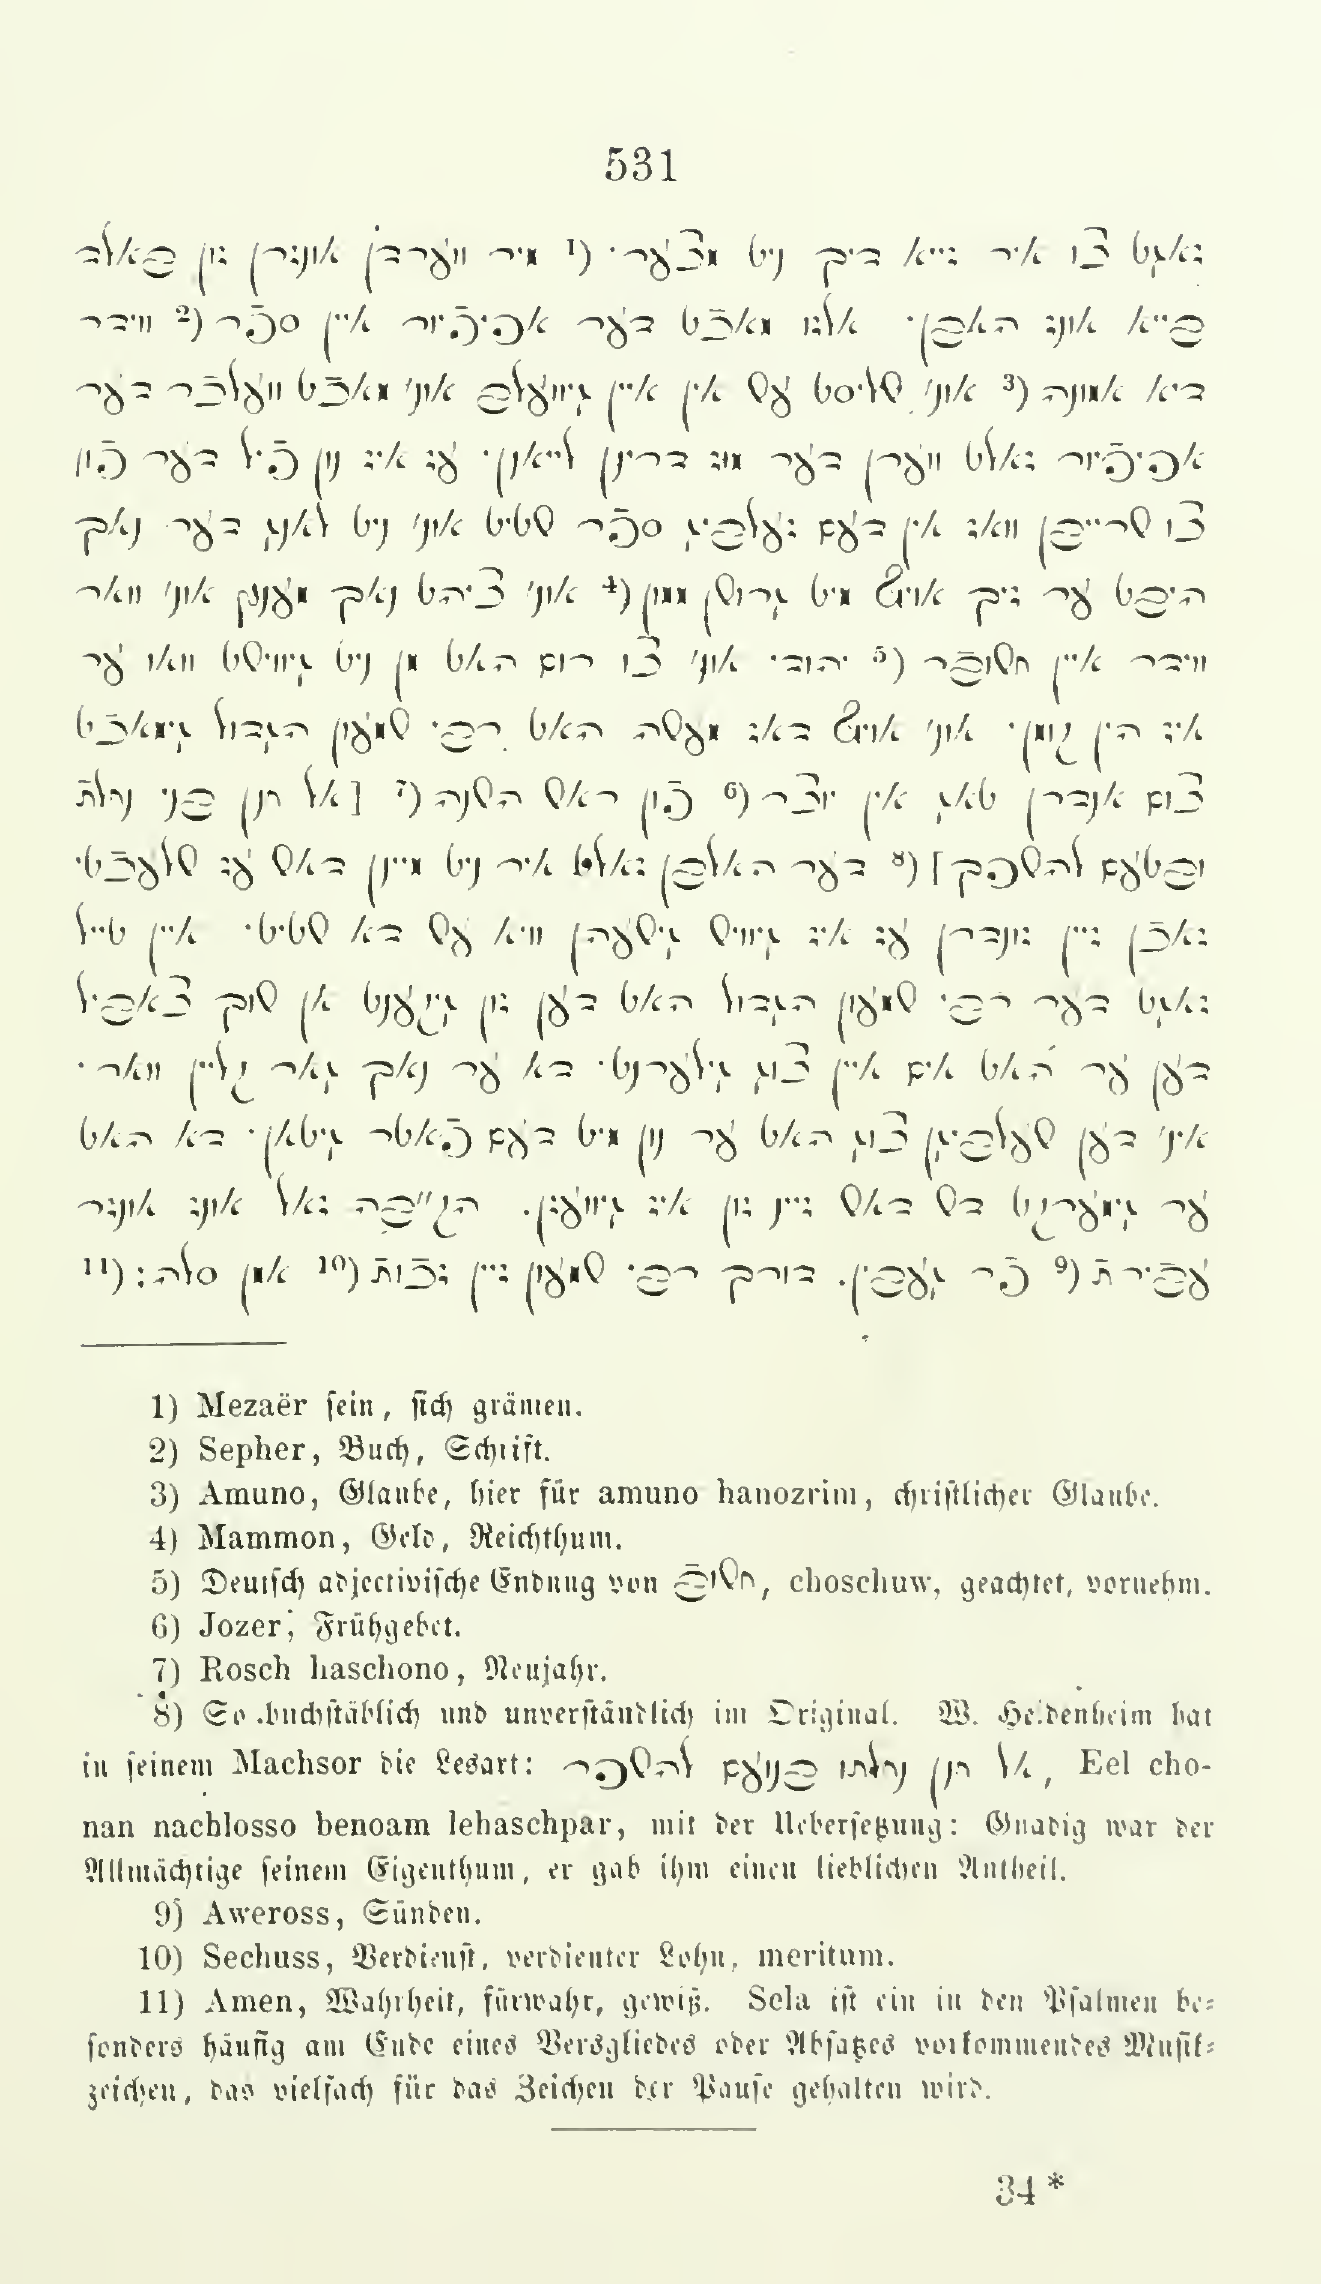 531
זאגט צו איר זייא דיק ניט מצער· (1 מיר ווערדן אונזרן זון באלד
בייא אונז האבן· אלזו מאכֿט דער אפיפֿיור איין ספֿר (2 ווידר
דיא אמונה (3 אוני שליסט עש אין איין גיוועלב אוני מאכֿט וועלכֿר דער
אפיפֿיור זאלט ווערן דער מוז דרינן לייאנן· עז איז נון פֿיל דער פֿון
צו שרייבן וואז אין דעם זעלביג ספֿר שטיט אוני ניט לאנג דער נאך
היבט ער זיך אויף מיט גרושן ממון (4 אוני ציהט נאך מענץ אוני וואר
ווידר איין חשובֿר (5 יהודי אוני צו רום האט מן ניט גיווישט וואו ער
איז הין קומן· אוני אויף דאז מעשה האט רבי שמעון הגדול גימאכֿט
צום אנדרן טאג אין יוצר (6 פֿון ראש השנה (7 [אל חנן בני נחלתֿ
ובטעם להשפך] (8 דער האלבן זאלט איר ניט מיינן דאש עז שלעכֿטי
זאכֿן זיין זונדרן עז איז גיוויש גישעהן וויא עש דא שטיט· איין טייל
זאגט דער רבי שמעון הגדול האט דען זון גיקענט אן שוך צאביל
דען ער האט אים איין צוג גילערנט· דא ער נאך גאר קליין וואר·
איני דען שעלביגן צוג האט ער נון מיט דעם פֿאטר גיטאן· דא האט
ער גימערקט דש דאש זיין זון איז גיוועזן. הק״בה זאל אונז אונזר
עבֿירתֿ (9 פֿר געבין. דורך רבי שמעון זיין זכֿותֿ (10 אמן סלה: (11
1) Mezaër sein, sich grämen.
2) Sepher, Buch, Schrift.
3) Amuno, Glaube, hier für amuno hanozrim, christlicher Glaube.
4) Mammon, Geld, Reichthum.
5) Deutsch adjectivische Endung von חשובֿ, choschuw, geachtet, vornehm.
6) Jozer, Frühgebet.
7) Rosch haschono, Neujahr.
8) So buchstäblich und unverständlich im Original. W. Heidenheim hat
in seinem Machsor die Lesart: אל חנן נחלתו בנועם להשפר, Eel cho-
nan nachlosso benoam lehaschpar, mit der Uebersetzung: Gnädig war der
Allmächtige seinem Eigenthum, er gab ihm einen lieblichen Antheil.
9) Aweross, Sünden.
10) Sechuss, Verdienst, verdienter Lohn, meritum.
11) Amen, Wahrheit, fürwahr, gewiß. Sela ist ein in den Psalmen be-
sonders häufig am Ende eines Versgliedes oder Absatzes vorkommendes Musik-
zeichen, das vielfach für das Zeichen der Pause gehalten wird.
34*